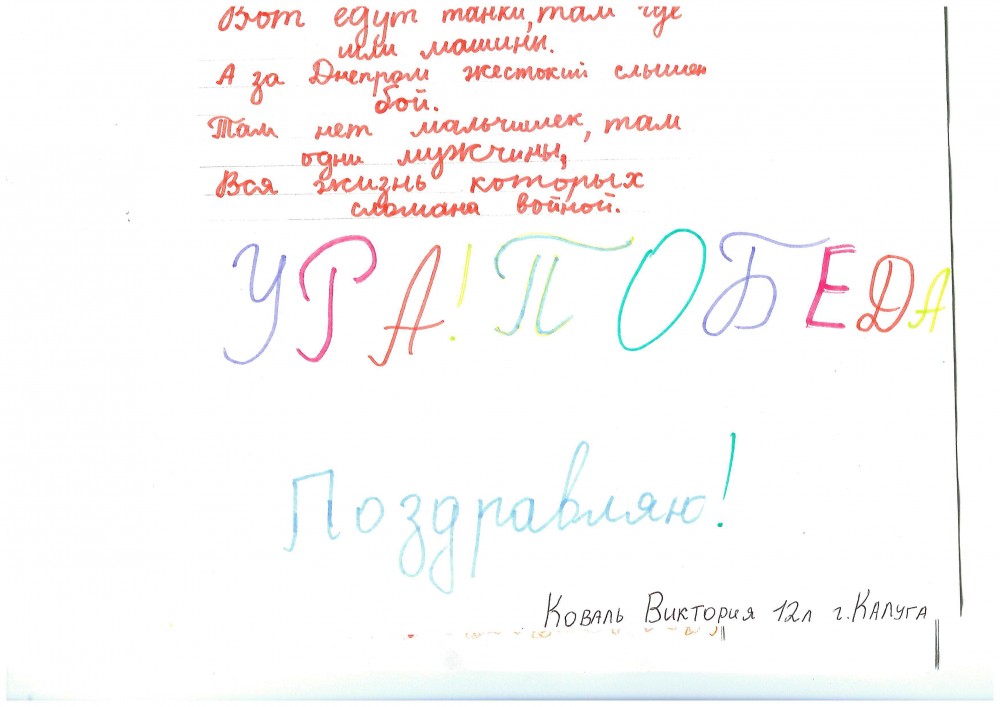 Вот едут танки, там где
шли машины.
А за Днепром жестокий слышен
бой.
Там нет мальчишек, там
одни мужчины,
Вся жизнь которых
сломана войной.
УРА! ПОБЕДА
Поздравляю!
Коваль Виктория 12л г. Калуга